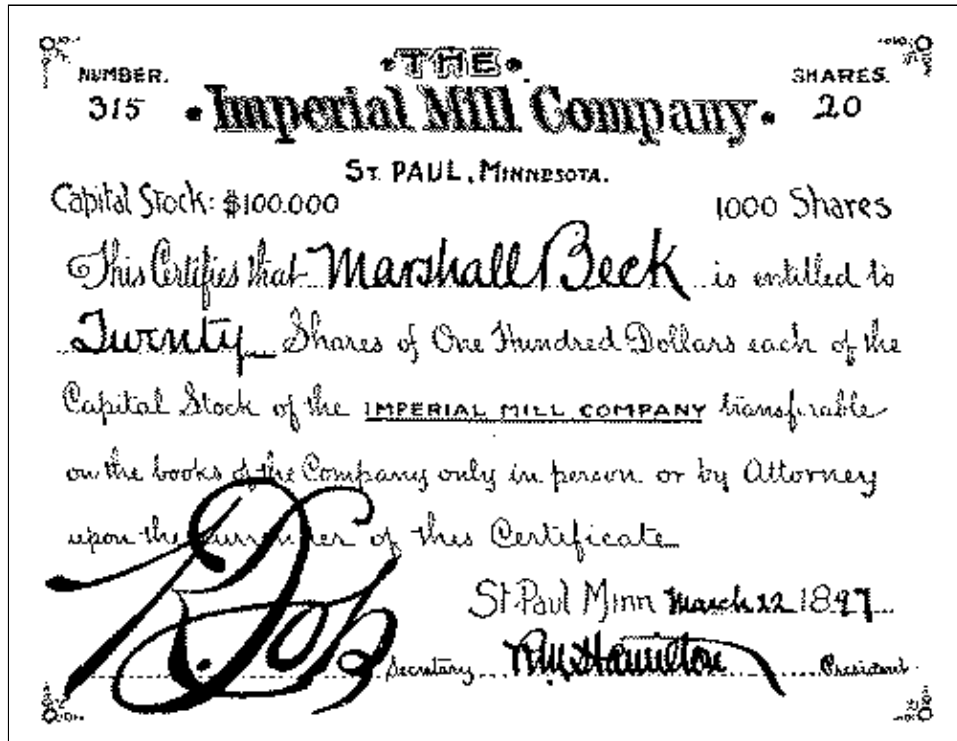 THE
NUMBER. SHARES.
315 Imperial Mill Company 20
ST. PAUL, MINNESOTA.
Capital Stock: $100.000 1000 Shares
This Certifies that Marshall Beck is entitled to
Twenty Shares of One Hundred Dollars each of the
Capital Stock of the IMPERIAL MILL COMPANY transferable
on the books of the Company only in person or by Attorney
upon the surrender of this Certificate
St. Paul Minn March 22 1897
Secretary R.M. Hamilton President